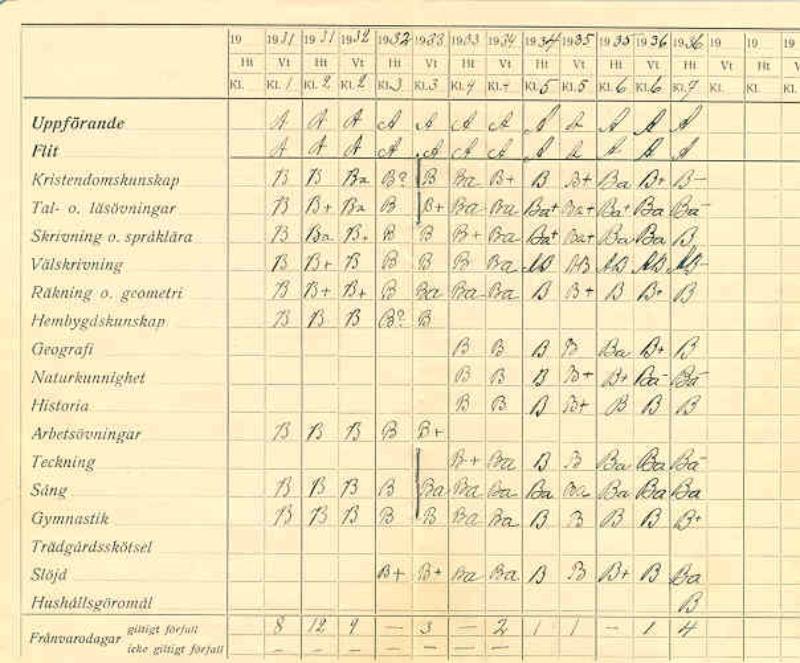 19 1931 1931 1932 1932 1933 1933 1934 1934 1935 1935 1936 1936 19 19 19
Ht Vt Ht Vt Ht Vt Ht Vt Ht Vt Ht Vt Ht Vt Ht V
Kl. Kl. 1 Kl. 2 Kl. 2 Kl. 3 Kl. 3 Kl. 4 Kl. 4 Kl. 5 Kl. 5 Kl. 6 Kl. 6 Kl. 7 Kl. Kl. Kl.
Uppförande A A A A A A A A A A A A
Flit A A A A A A A A A A A A
Kristendomskunskap B B Ba B? B Ba B+ B B+ Ba B+ B-
Tal- o. läsövningar B B+ Ba B B+ Ba Ba Ba+ Ba+ Ba+ Ba Ba-
Skrivning o. språklära B Ba B+ B B B+ Ba Ba+ Ba+ Ba Ba B
Välskrivning B B+ B B B B Ba AB AB AB AB AB-
Räkning o. geometri B B+ B+ B Ba Ba Ba B B+ B B+ B
Hembygdskunskap B B B B? B
Geografi B B B B Ba B+ B
Naturkunnighet B B B B+ B+ Ba- Ba-
Historia B B B B+ B B B
Arbetsövningar B B B B B+
Teckning B+ Ba B B Ba Ba Ba-
Sång B B B B Ba Ba Ba Ba Ba Ba Ba Ba
Gymnastik B B B B B Ba Ba B B B B B+
Trädgårdsskötsel
Slöjd B+ B+ Ba Ba B B B+ B Ba
Hushållsgöromål B
Frånvarodagar giltigt förfall 8 12 9 — 3 — 2 1 1 — 1 4
icke giltigt förfall — — — — — — —